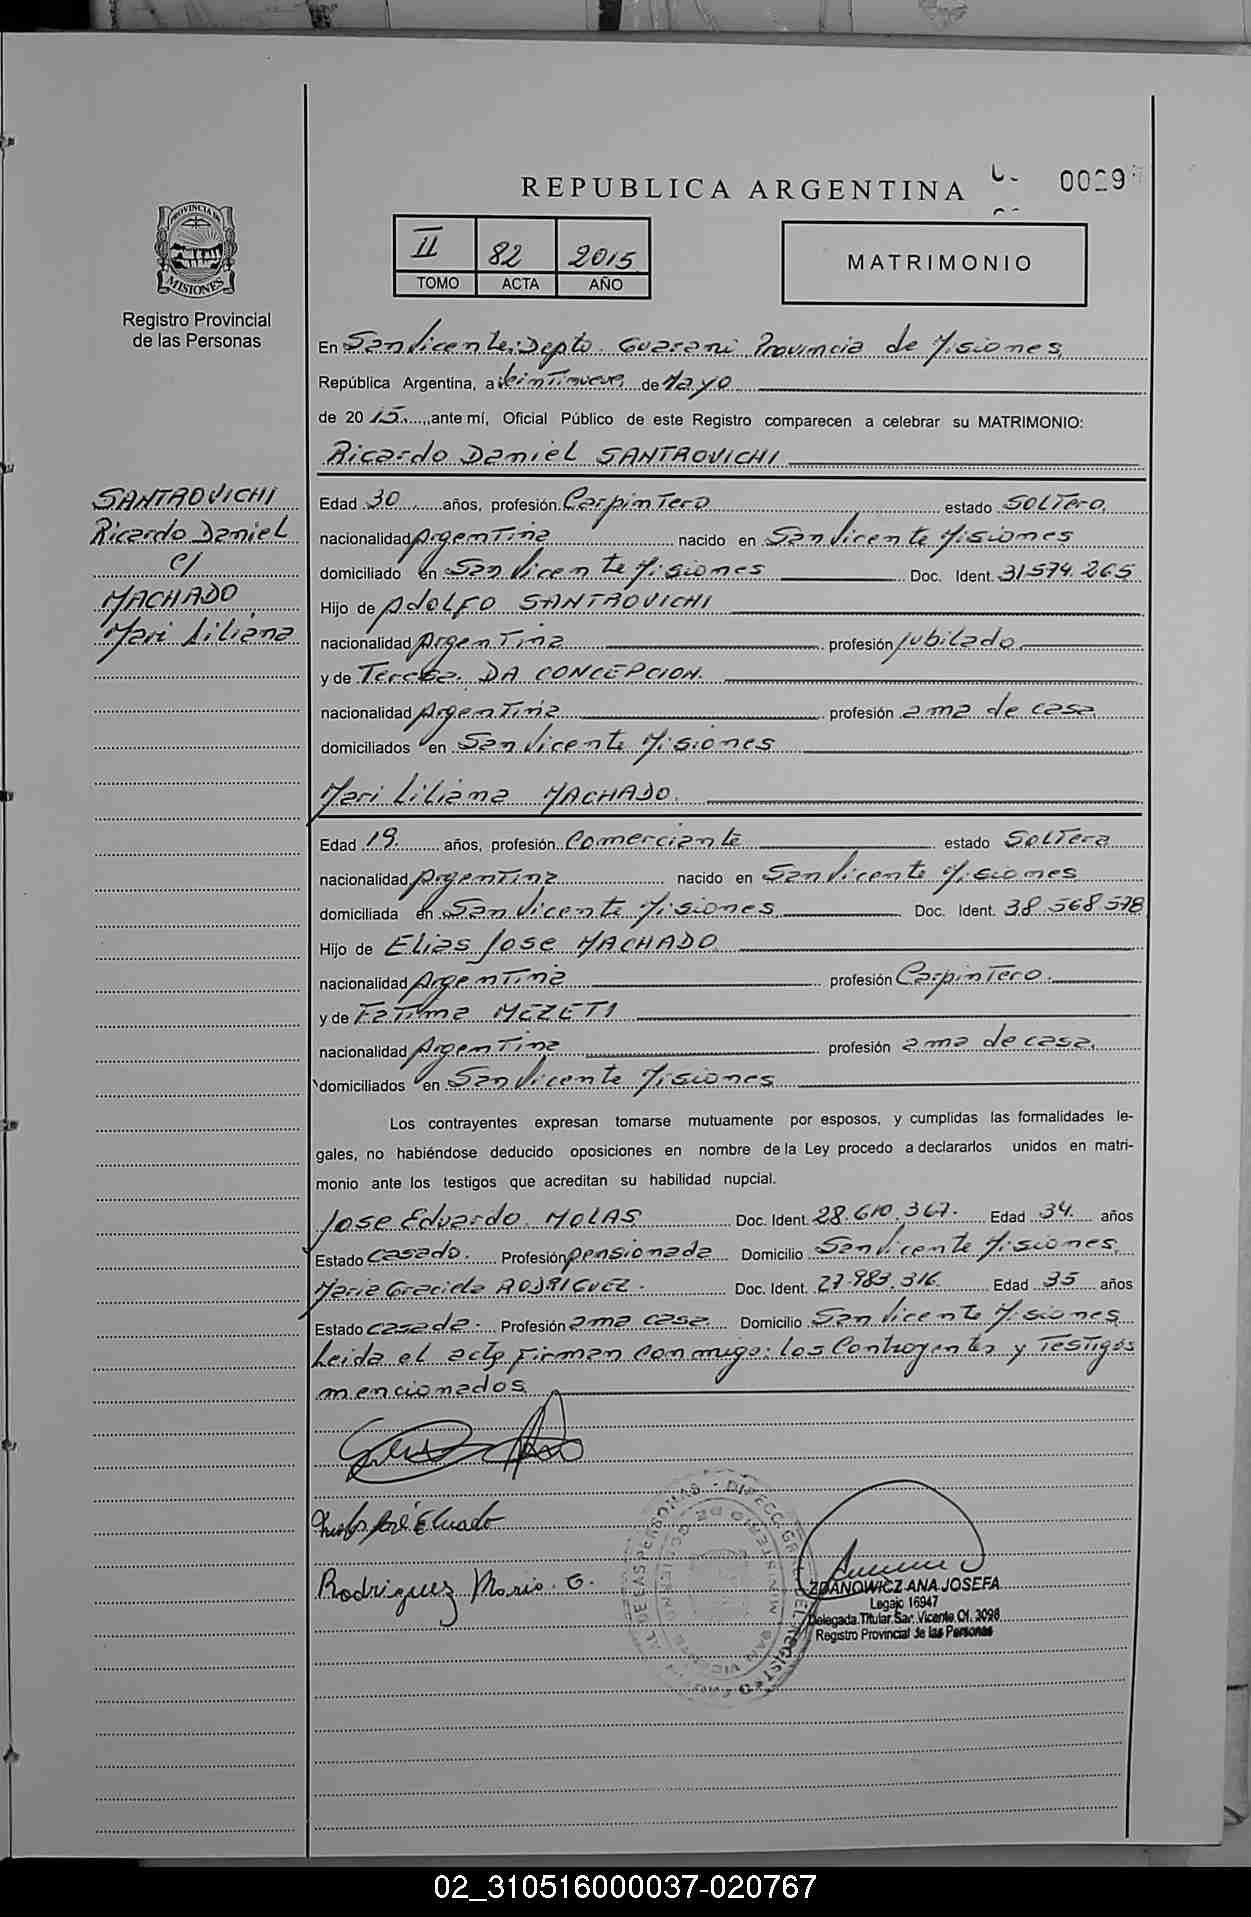 REPUBLICA ARGENTINA
II 82 2015
TOMO ACTA AÑO
MATRIMONIO
PROVINCIA DE
MISIONES
Registro Provincial
de las Personas
En San Vicente: Depto. Guarani Provincia de Misiones
República Argentina, a Veintinueve de Mayo
de 2015 ante mí, Oficial Público de este Registro comparecen a celebrar su MATRIMONIO:
Ricardo Daniel SANTROVICHI
SANTROVICHI
Ricardo Daniel
c/
MACHADO
Mari Liliana
Edad 30 años, profesión Carpintero estado Soltero
nacionalidad Argentina nacido en San Vicente Misiones
domiciliado en San Vicente Misiones Doc. Ident. 31.574.265
Hijo de Adolfo SANTROVICHI
nacionalidad Argentina profesión Jubilado
y de Teresa DA CONCEPCION.
nacionalidad Argentina profesión ama de casa
domiciliados en San Vicente Misiones
Mari Liliana MACHADO.
Edad 19. años, profesión Comerciante estado Soltera
nacionalidad Argentina nacido en San Vicente Misiones
domiciliada en San Vicente Misiones Doc. Ident. 38.568.578
Hijo de Elias Jose MACHADO
nacionalidad Argentina profesión Carpintero.
y de Fatima MEZETI
nacionalidad Argentina profesión ama de casa.
domiciliados en San Vicente Misiones
Los contrayentes expresan tomarse mutuamente por esposos, y cumplidas las formalidades le-
gales, no habiéndose deducido oposiciones en nombre de la Ley procedo a declararlos unidos en matri-
monio ante los testigos que acreditan su habilidad nupcial.
Jose Eduardo MOLAS Doc. Ident. 28.610.367. Edad 34. años
Estado Casado. Profesión pensionada Domicilio San Vicente Misiones
Maria Graciela RODRIGUEZ. Doc. Ident. 27.983.316. Edad 35 años
Estado casada. Profesión ama casa Domicilio San Vicente Misiones
Leida el acta firman conmigo: los Contrayentes y Testigos
mencionados
José Eduardo
Rodriguez Maria. G.
ZDANOWICZ ANA JOSEFA
Legajo 16947
Delegada Titular San Vicente Of. 3098
Registro Provincial de las Personas
02_310516000037-020767